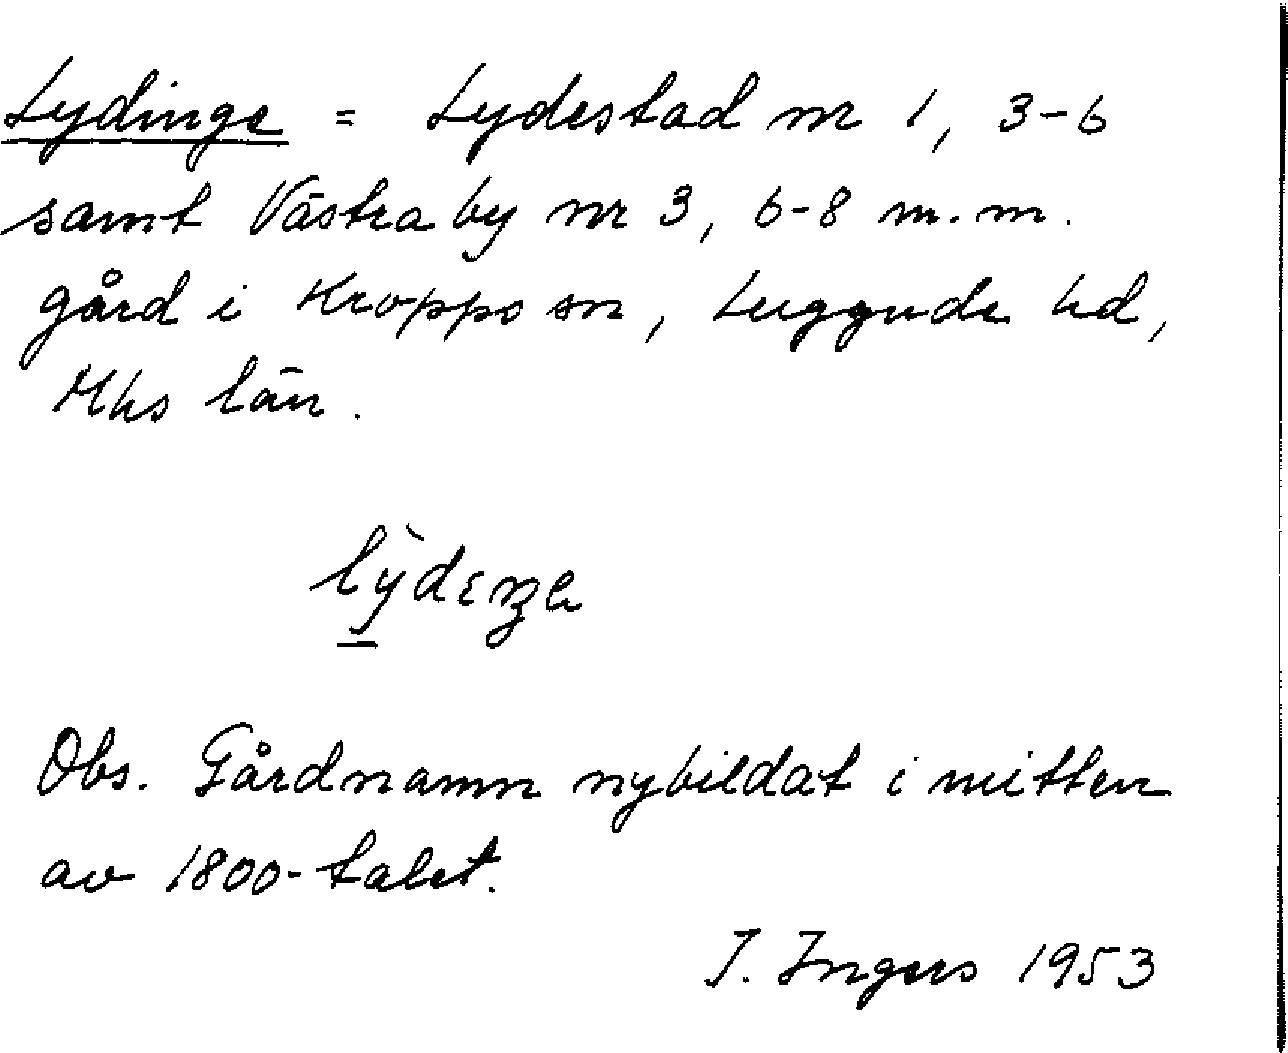 Lydinge = Lydestad nr 1, 3-6
samt Västraby nr 3, 6-8 m.m.
gård i Kropps sn, Luggude hd,
Mhs län.
lỳdɛŋə
Obs. Gårdnamn nybildat i mitten
av 1800-talet.
I. Ingers 1953